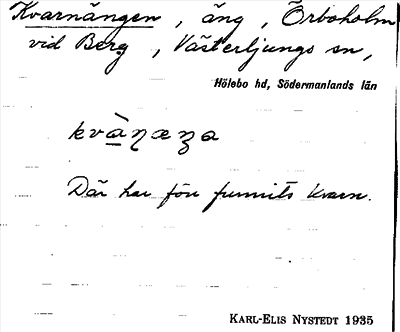 Kvarnängen, äng, Örboholm
vid Berg, Västerljungs sn,
Hölebo hd, Södermanlands län
kvàɳæɳa
Där har förr funnits kvarn.
KARL-ELIS NYSTEDT 1935